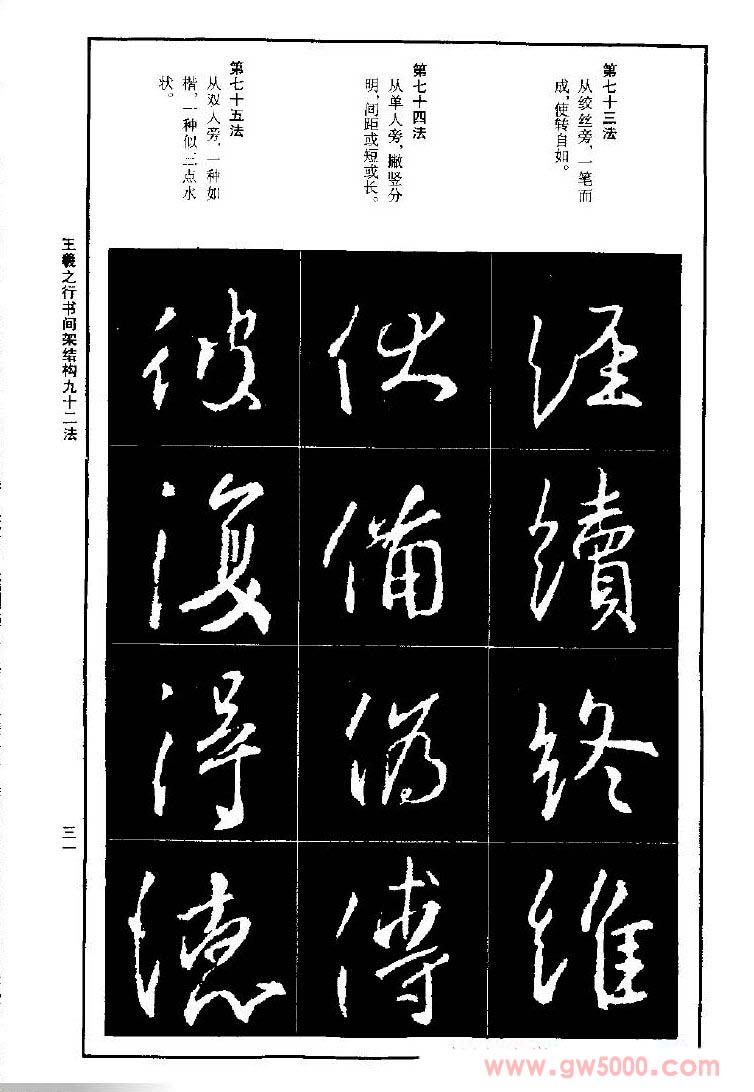 第七十三法
从绞丝旁，一笔而
成，使转自如。
第七十四法
从单人旁，撇竖分
明，间距或短或长。
第七十五法
从双人旁，一种如
楷，一种似三点水
状。
經
續
終
維
伏
備
偽
傅
彼
復
得
德
王羲之行书间架结构九十二法
三一
www.gw5000.com